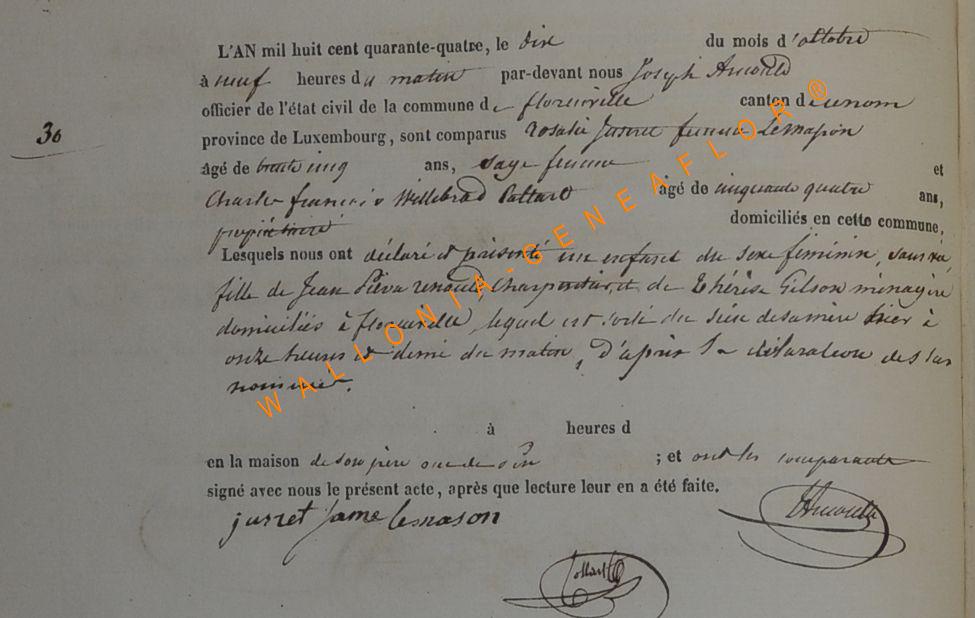 L'AN mil huit cent quarante-quatre, le dix du mois d'octobre
30
à neuf heures du matin par-devant nous Joseph Arnould
officier de l'état civil de la commune de florenville canton de ce nom
province de Luxembourg, sont comparus rosalie Jusret femme Lemaçon
âgé de trente cinq ans, sage femme et
Charles françois Willebrod Pottard âgé de cinquante quatre ans,
propriétaire domiciliés en cette commune,
Lesquels nous ont déclaré et présenté un enfant du sexe féminin, sans vie,
fille de Jean renould Charpentier, et de Thérèse Gilson ménagère
domiciliés à florenville, lequel est sorti du sein de sa mère hier à
onze heures et demi du matin, d'après la déclaration des sus
nommés.
à heures d
en la maison de son père ; et ont les comparants
signé avec nous le présent acte, après que lecture leur en a été faite.
jusret fame lemason
Arnould
WALLONIA-GENEAFLOR®